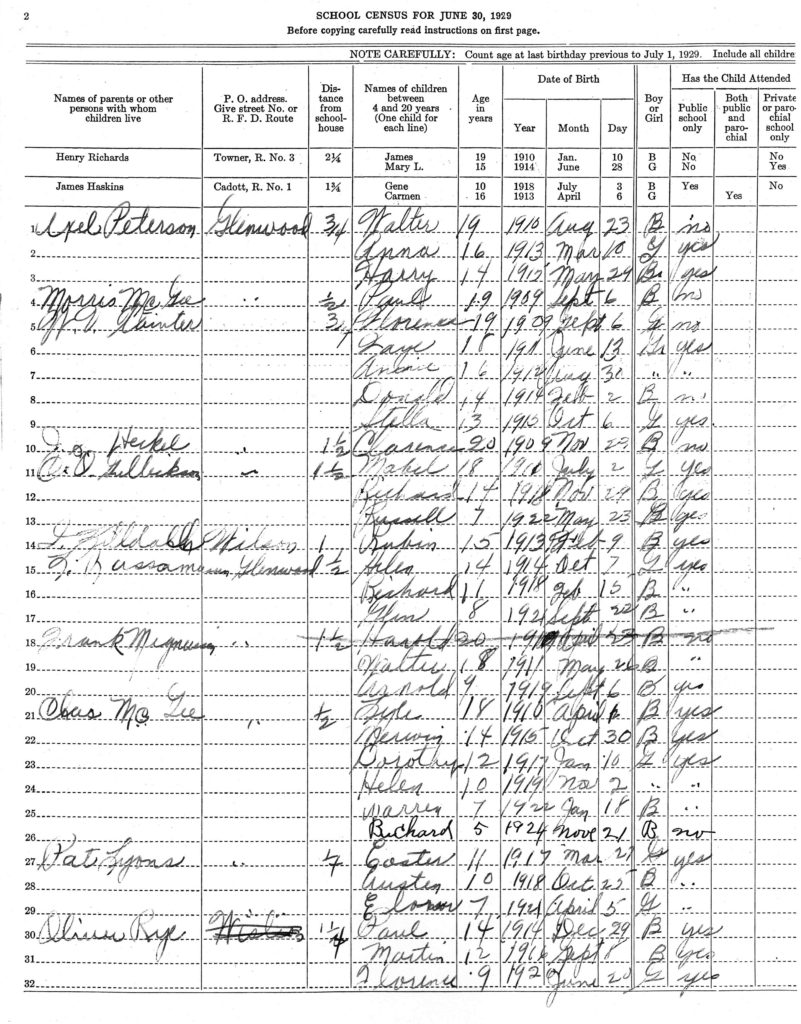 2
SCHOOL CENSUS FOR JUNE 30, 1929
Before copying carefully read instructions on first page.
NOTE CAREFULLY: Count age at last birthday previous to July 1, 1929. Include all childre
Names of parents or other persons with whom children live
P. O. address. Give street No. or R. F. D. Route
Dis- tance from school- house
Names of children between 4 and 20 years (One child for each line)
Age in years
Date of Birth
Year Month Day
Boy or Girl
Has the Child Attended
Public school only
Both public and paro- chial
Private or paro- chial school only
Henry Richards Towner, R. No. 3 2¼ James 19 1910 Jan. 10 B No No
Mary L. 15 1914 June 28 G No Yes
James Haskins Cadott, R. No. 1 1¾ Gene 10 1918 July 3 B Yes No
Carmen 16 1913 April 6 G Yes
1 Axel Peterson Glenwood 3/4 Walter 19 1910 Aug 23 B no
2 Anna 16 1913 Mar 10 G yes
3 Harry 14 May 29 yes
4 Morris Mc Gee " 1/2 Paul 19 1909 Sept 6 B no
5 3/4 Florence 19 1909 Sept 6 G no
6 Faye 18 June 13 yes
7 16 1912 Aug 30 " "
8 Donald 14 1914 Feb 2 B no
9 Stella 13 1915 Oct 6 G yes
10 Heckel " 1 1/2 Clarence 20 1909 Nov 29 B no
11 " 1 1/2 Mabel 18 July 2 G yes
12 Richard 14 Nov 29 B yes
13 Russell 7 1922 May 23 B yes
14 Wilson 1 Rubin 15 1913 9 B yes
15 Glenwood 1/2 Helen 14 1914 Oct 7 G yes
16 Richard 11 1918 Feb 15 B "
17 Glen 8 1921 Sept 22 B "
18 Frank Magnuson " 1 1/2 Harold 20 April 23 B no
19 Walter 18 1911 May 26 B "
20 Arnold 9 1919 Sept 6 B yes
21 Chas Mc Gee " 1/2 18 1910 April B yes
22 Derwin 14 1915 Oct 30 B yes
23 Dorothy 12 1917 Jan 10 G yes
24 Helen 10 1919 Nov 2 " "
25 Warren 7 1922 Jan 18 B "
26 Richard 5 1924 Nove 21 B no
27 Pat Lyons " Easter 11 1917 Mar 27 G yes
28 Austin 10 1918 Oct 25 B "
29 7 1921 April 5 G "
30 Oliver Rye 1 1/4 Paul 14 1914 Dec 29 B yes
31 Martin 12 1916 Sept 8 B yes
32 Florence 9 June 20 G yes